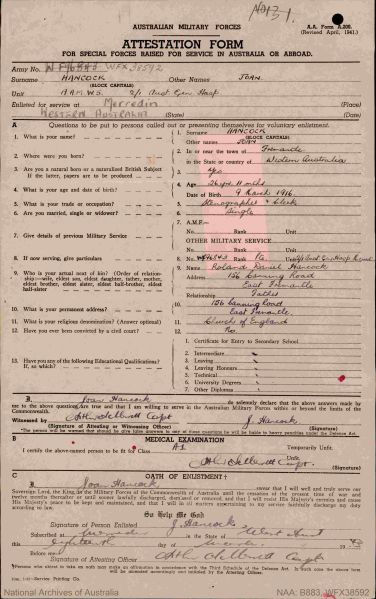 AUSTRALIAN MILITARY FORCES
A.A. Form A.200.
(Revised April, 1941.)
ATTESTATION FORM
FOR SPECIAL FORCES RAISED FOR SERVICE IN AUSTRALIA OR ABROAD.
Army No. WFX38592
Surname HANCOCK Other Names JOAN.
(BLOCK CAPITALS)
Unit A.A.M.W.S. 2/1 Aust Gen Hosp.
Enlisted for service at Merredin (Place)
WESTERN AUSTRALIA (State) (Date)
A Questions to be put to persons called out or presenting themselves for voluntary enlistment.
1. What is your name? 1. Surname HANCOCK
(BLOCK CAPITALS)
Other names JOAN
2. Where were you born? 2. In or near the town of Fremantle
in the State or country of Western Australia
3. Are you a natural born or a naturalised British Subject? 3. Yes.
If the latter, papers are to be produced
4. What is your age and date of birth? 4. Age 26 yrs 11 months
Date of Birth 9 March 1916.
5. What is your trade or occupation? 5. Stenographer & Clerk
6. Are you married, single or widower? 6. Single
7. Give details of previous Military Service 7. A.M.F.—
No. Rank Unit
OTHER MILITARY SERVICE
No. Rank Unit
8. If now serving, give particulars 8. No. Rank Pte Unit
9. Who is your actual next of kin? (Order of relationship—wife, eldest son, eldest daughter, father, mother, eldest brother, eldest sister, eldest half-brother, eldest half-sister 9. Name Roland Daniel Hancock
Address 136 Canning Road
East Fremantle
Relationship Father
10. What is your permanent address? 10. 136 Canning Road
East Fremantle
11. What is your religious denomination? (Answer optional) 11. Church of England
12. Have you ever been convicted by a civil court? 12. No.
13. Have you any of the following Educational Qualifications? If, so which? 1. Certificate for Entry to Secondary School
2. Intermediate
3. Leaving
4. Leaving Honours
5. Technical
6. University Degrees
7. Other Diplomas
I, Joan Hancock do solemnly declare that the above answers made by
me to the above questions are true and that I am willing to serve in the Australian Military Forces within or beyond the limits of the
Commonwealth.
Witnessed by Capt J. Hancock
(Signature of Attesting or Witnessing Officer) (Signature of Person Enlisted)
*The person will be warned that should he give false answers to any of these questions he will be liable to heavy penalties under the Defence Act.
B MEDICAL EXAMINATION
I certify the above-named person to be fit for Class A1 Temporarily Unfit.
Unfit.
Capt.
C OATH OF ENLISTMENT
I, Joan Hancock swear that I will well and truly serve our
Sovereign Lord, the King, in the Military Forces of the Commonwealth of Australia until the cessation of the present time of war and
twelve months thereafter or until sooner lawfully discharged, dismissed or removed, and that I will resist His Majesty's enemies and cause
His Majesty's peace to be kept and maintained, and that I will in all matters appertaining to my service faithfully discharge my duty
according to law.
So Help Me God
Signature of Person Enlisted J. Hancock
Subscribed at in the State of West Aust
this Eighteenth day of
Before me—
Signature of Attesting Officer Capt
National Archives of Australia
NAA: B883, WFX38592